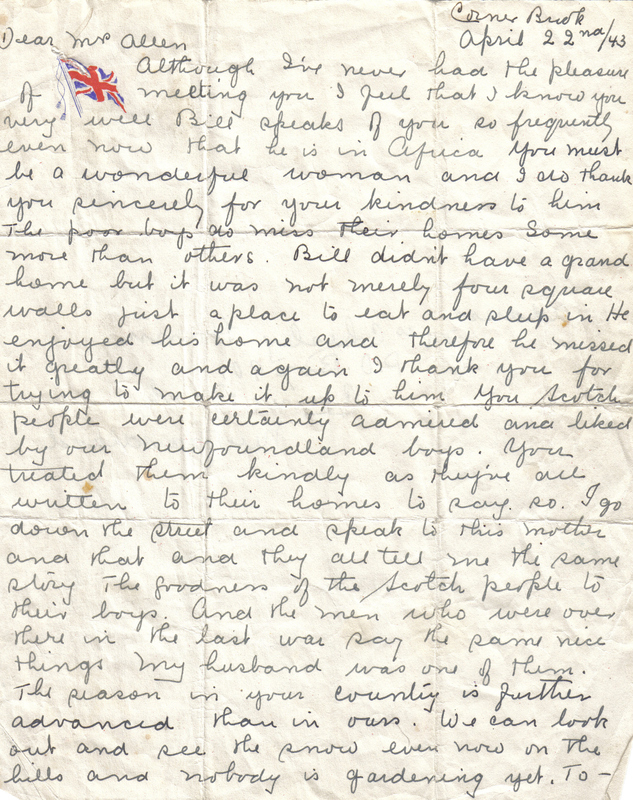 Corner Brook
April 22nd/43
Dear Mrs Allen
Although I've never had the pleasure
of meeting you I feel that I know you
very well Bill speaks of you so frequently
even now that he is in Africa You must
be a wonderful woman and I do thank
you sincerely for your kindness to him
The poor boys do miss their homes Some
more than others. Bill didn't have a grand
home but it was not merely four square
walls just a place to eat and sleep in He
enjoyed his home and therefore he missed
it greatly and again I thank you for
trying to make it up to him You Scotch
people were certainly admired and liked
by our Newfoundland boys. You
treated them kindly as they've all
written to their homes to say so. I go
down the street and speak to this mother
and that and they all tell me the same
story The goodness of the Scotch people to
their boys. And the men who were over
there in the last war say the same nice
things My husband was one of them.
The season in your country is further
advanced than in ours. We can look
out and see the snow even now on the
hills and nobody is gardening yet. To-